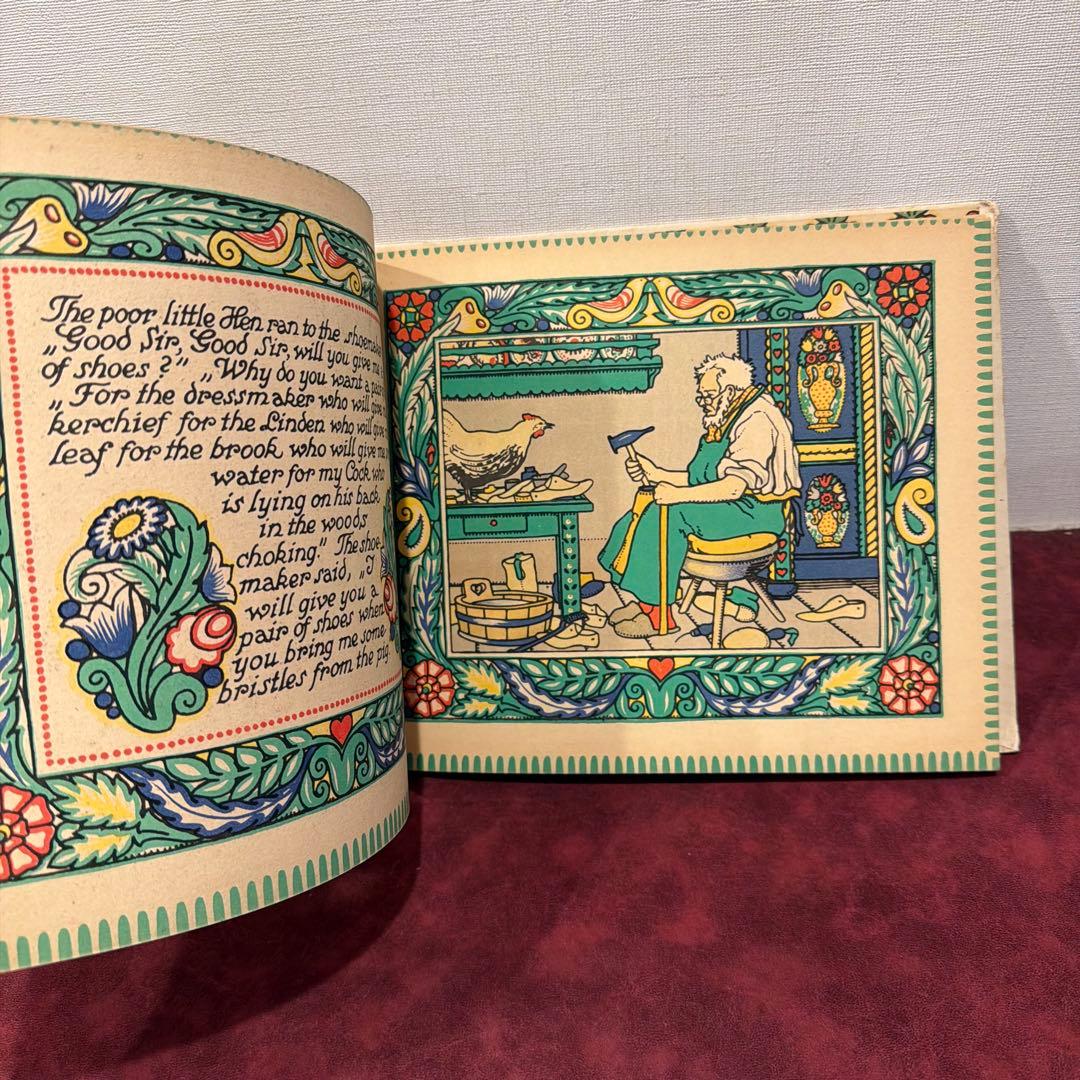 The poor little Hen ran to the shoemaker
„Good Sir, Good Sir, will you give me
of shoes ?" „Why do you want a
„For the dressmaker who will give
kerchief for the Linden who will give
leaf for the brook who will give me
water for my Cock who
is lying on his back
in the woods
choking." The shoe
maker said, „I
will give you a
pair of shoes when
you bring me some
bristles from the pig.